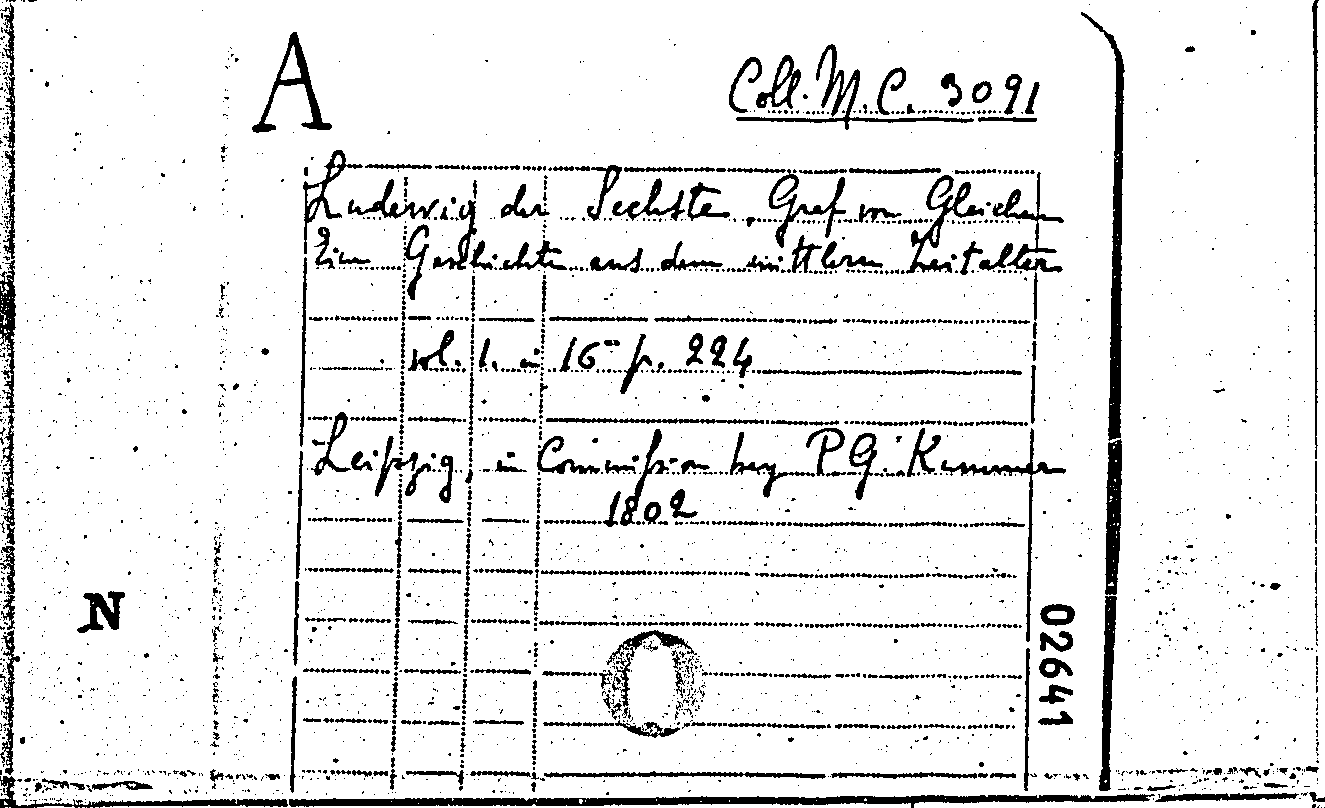 A
Coll. M. C. 3091
Ludewig der Sechste, Graf von Gleichen
Eine Geschichte aus dem mittlern Zeitalter
vol. 1. in 16° p. 224
Leipzig, in Commission bey P. G. Kummer
1802
N
02641